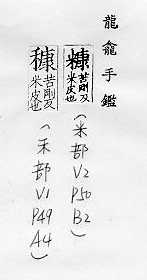 龍龕手鑑
糠苦剛反
米皮也
(米部V2P50B2)
穅苦剛反
米皮也
(禾部V1P49A4)